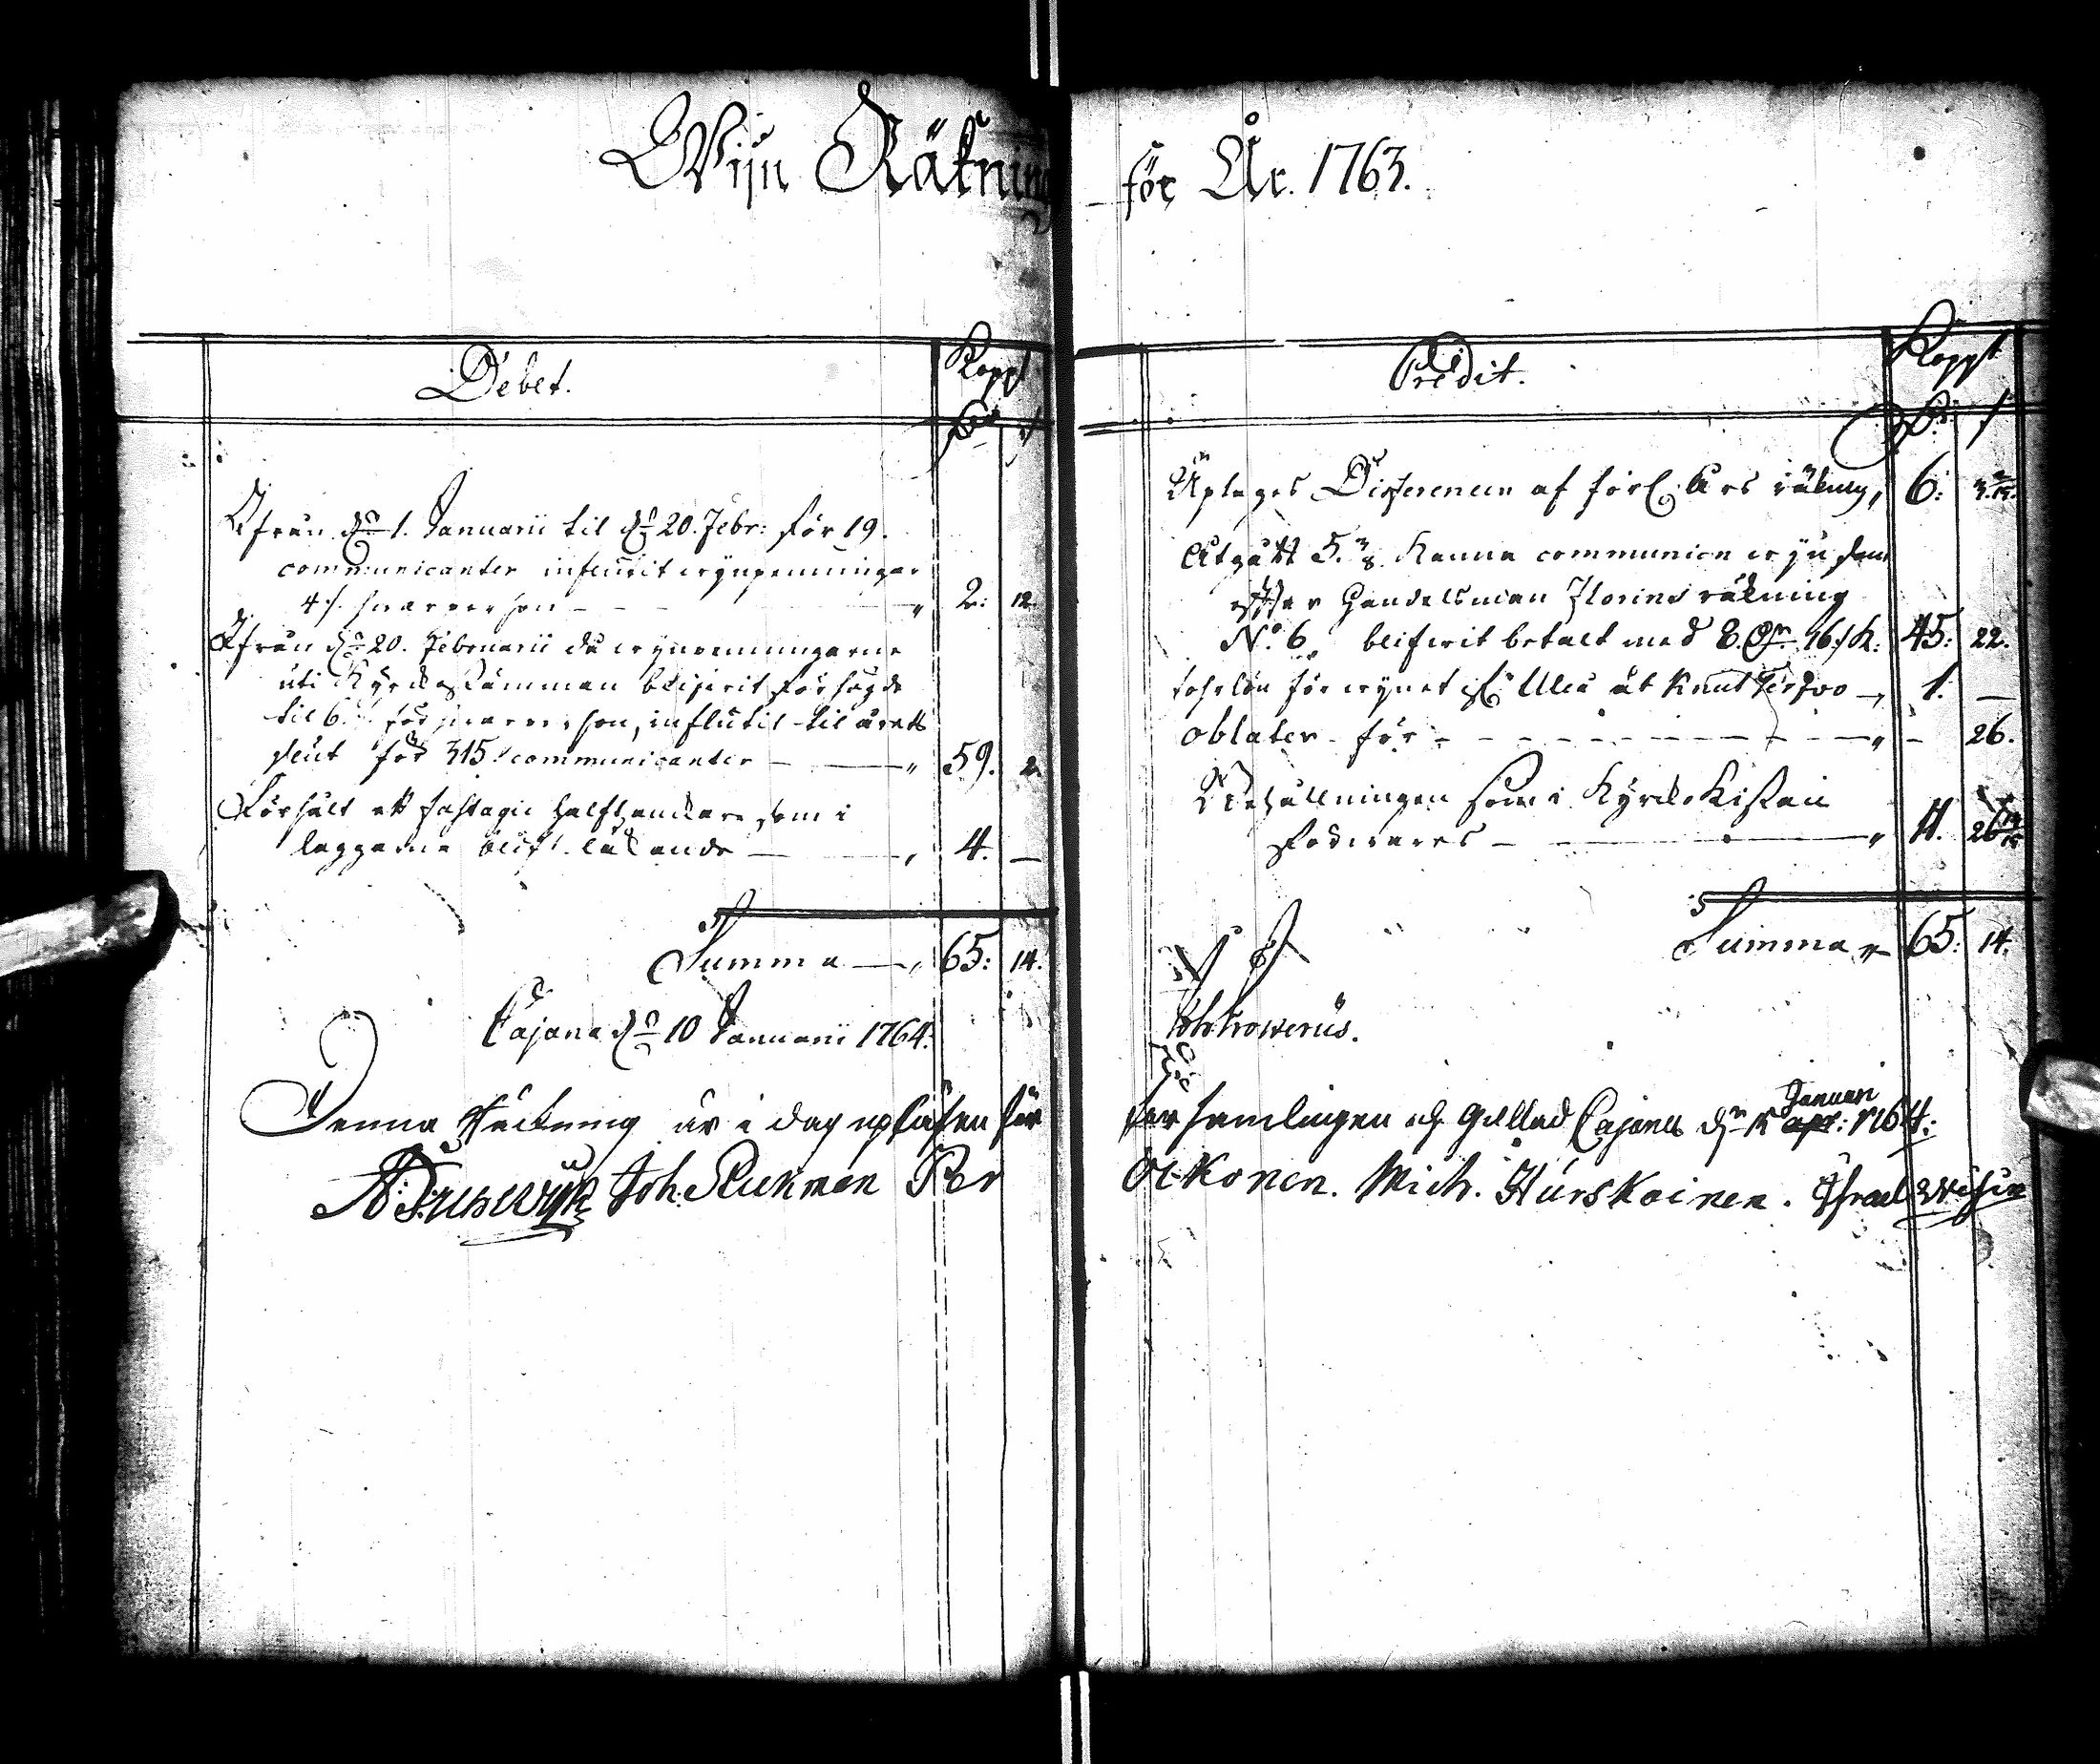 Wijn Räkning för År. 1763.
Debet.
Kopp:
Ifrån d. 1. Januarii til d. 20. Febr: för 19.
communicanter influtit wijnpenningar
4 /. hwar person — 2: 12.
Ifrån d. 20. Februarii då wijnpenningarne
uti Kyrckostämman blifwit förhögde
til 6. för hwar person, influtit til årets
slut för 315. communicanter — 59. 2
Försålt ett fastagie halfthankare som i
laggarna blifit läkande — 4. —
Summa — 65: 14.
Cajana d. 10 Januarii 1764:
Denna Räckning är i dag upläsen för
Joh. Per
Credit.
Kopp:
Uptages Differencen af förl. Års räkning, 6:
Utgått 5. Kanna communion wijn som
efter Handelsman Florins räkning
No. 6. blifwit betalt med 45: 22.
forlön för wijnet Uleå åt Knut — 1. —
oblater för — 26.
Behållningen som i Kyrcko Kistan
förwaras — 11. 26
Summa 65: 14.
församlingen och gillad Cajana d. 15 Januari 1764:
Olkonen. Mich. Hurskainen. Israel